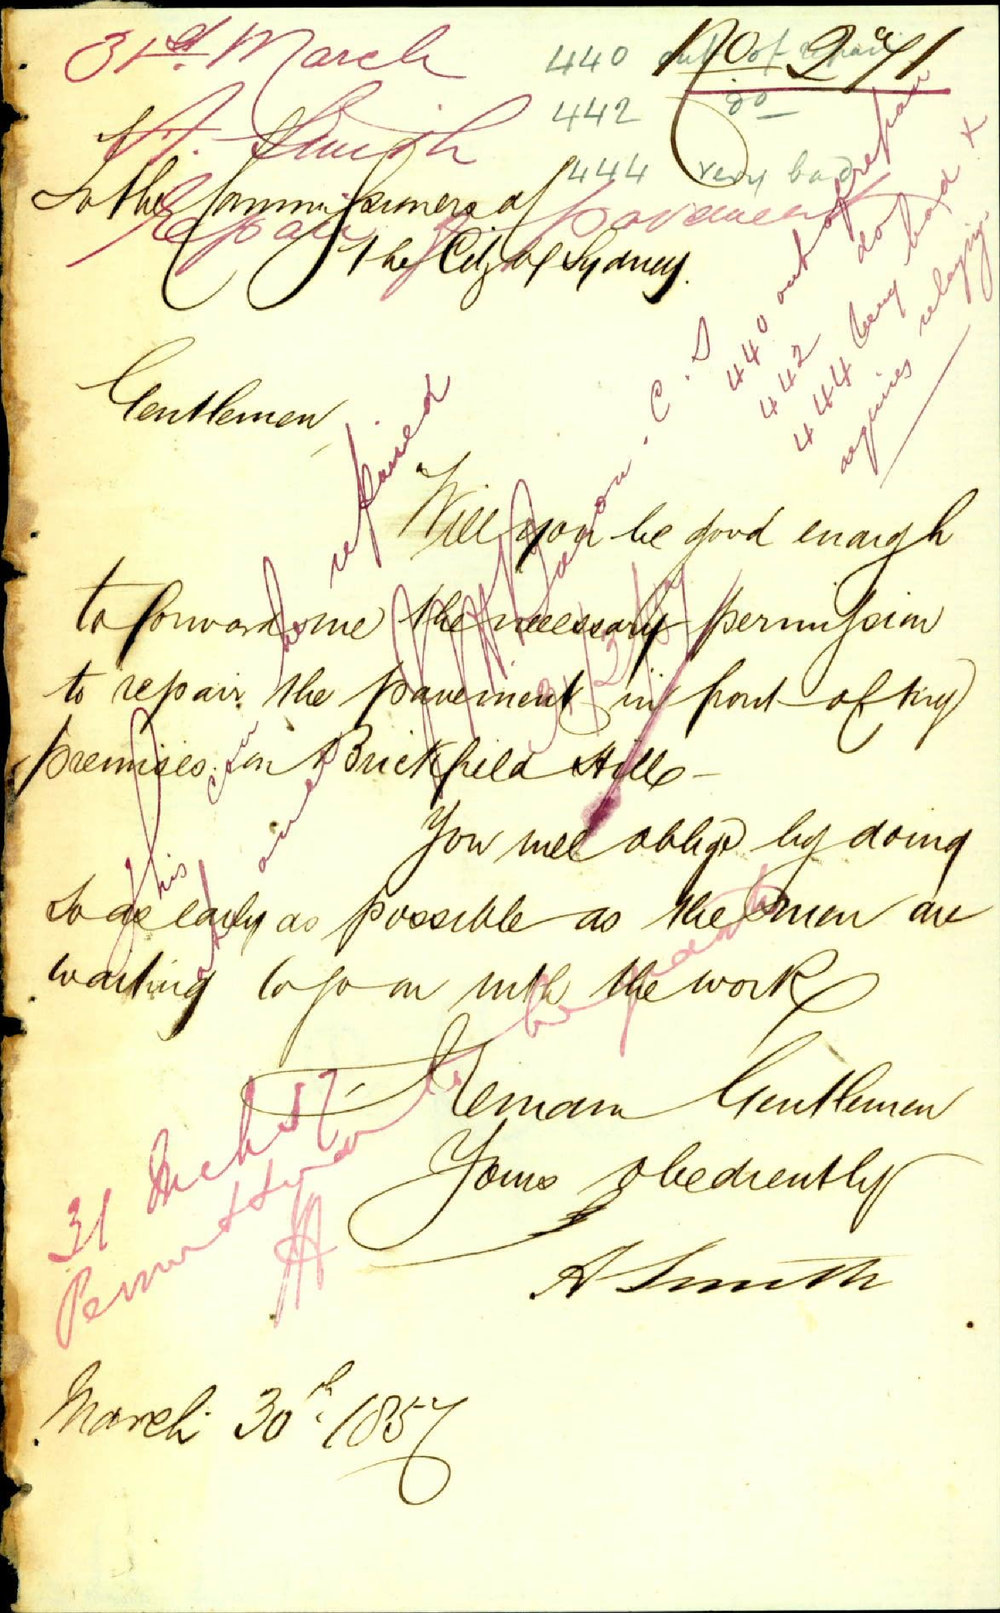 31st March
No. 291
A. Smith
Repair of pavement
440 out of repair
442 do
444 very bad
To the Commissioners of
The City of Sydney.
440 out of repair
442 do
444 very bad x
requires relaying
Gentlemen
Will you be good enough
to forward me the necessary permission
to repair the pavement in front of my
premises on Brickfield Hill –
You will oblige by doing
so as early as possible as the men are
waiting to go on with the work
I Remain Gentlemen
Yours obediently
A Smith
March 30th. 1857
This can be repaired
at once
C.S
31 Mch 57
Permission to be granted